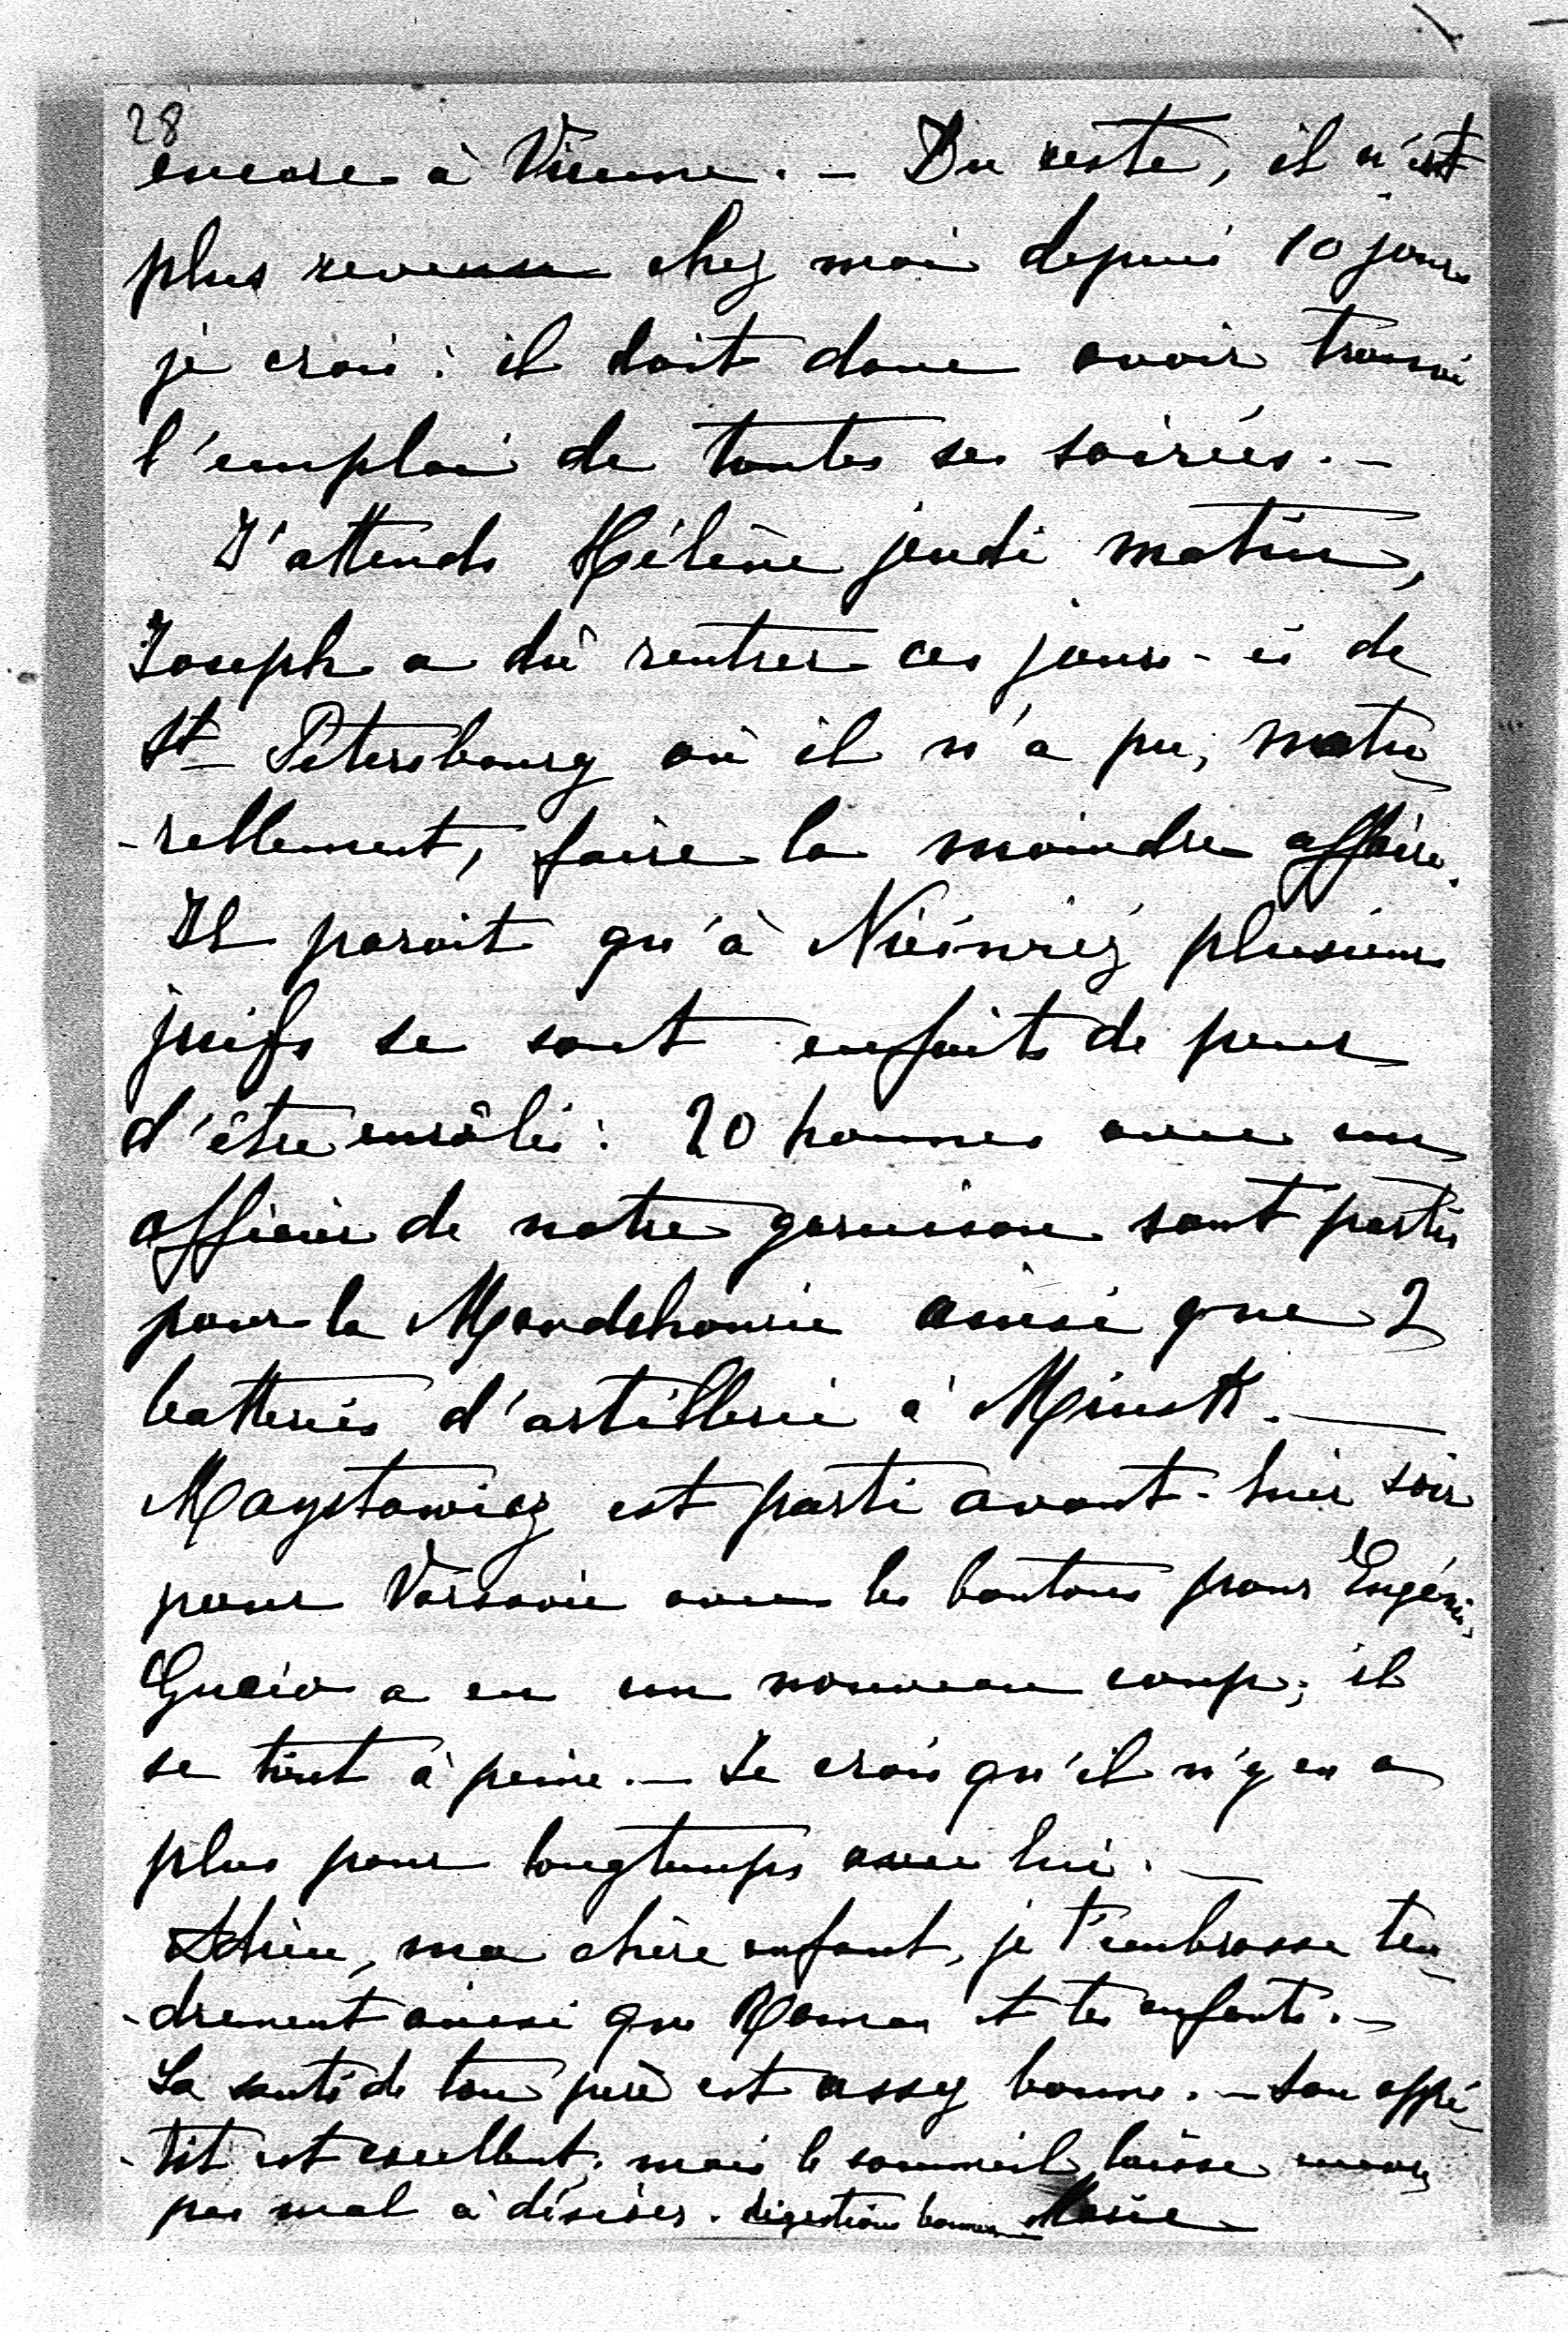 28
encore à Vienne. – Du reste, il n'est
plus revenu chez moi depuis 10 jours
je crois : il doit donc avoir trouvé
l'emploi de toutes ses soirées. –
J'attends Hélène jeudi matin,
Joseph a dû rentrer ces jours-ci de
St Pétersbourg où il n'a pu, natu-
-rellement, faire la moindre affaire.
Il parait qu'à Nieśwież plusieurs
juifs se sont enfuits de peur
d'être enrôlés : 20 hommes avec un
officier de notre garnison sont partis
pour la Mandchourie ainsi que 2
batteries d'artillerie à Minsk. –
est parti avant-hier soir
pour Varsovie avec les boutons pour Eugénie.
Gucio a eu un nouveau coup; il
se tient à peine. – Je crois qu'il n'y en a
plus pour longtemps avec lui. –
Adieu, ma chère enfant, je t'embrasse ten-
-drement ainsi que Roman et tes enfants. –
La santé de ton père est assez bonne. – Son appé-
-tit est excellent, mais le sommeil laisse encore
pas mal à désirer. digestion bonne Marie